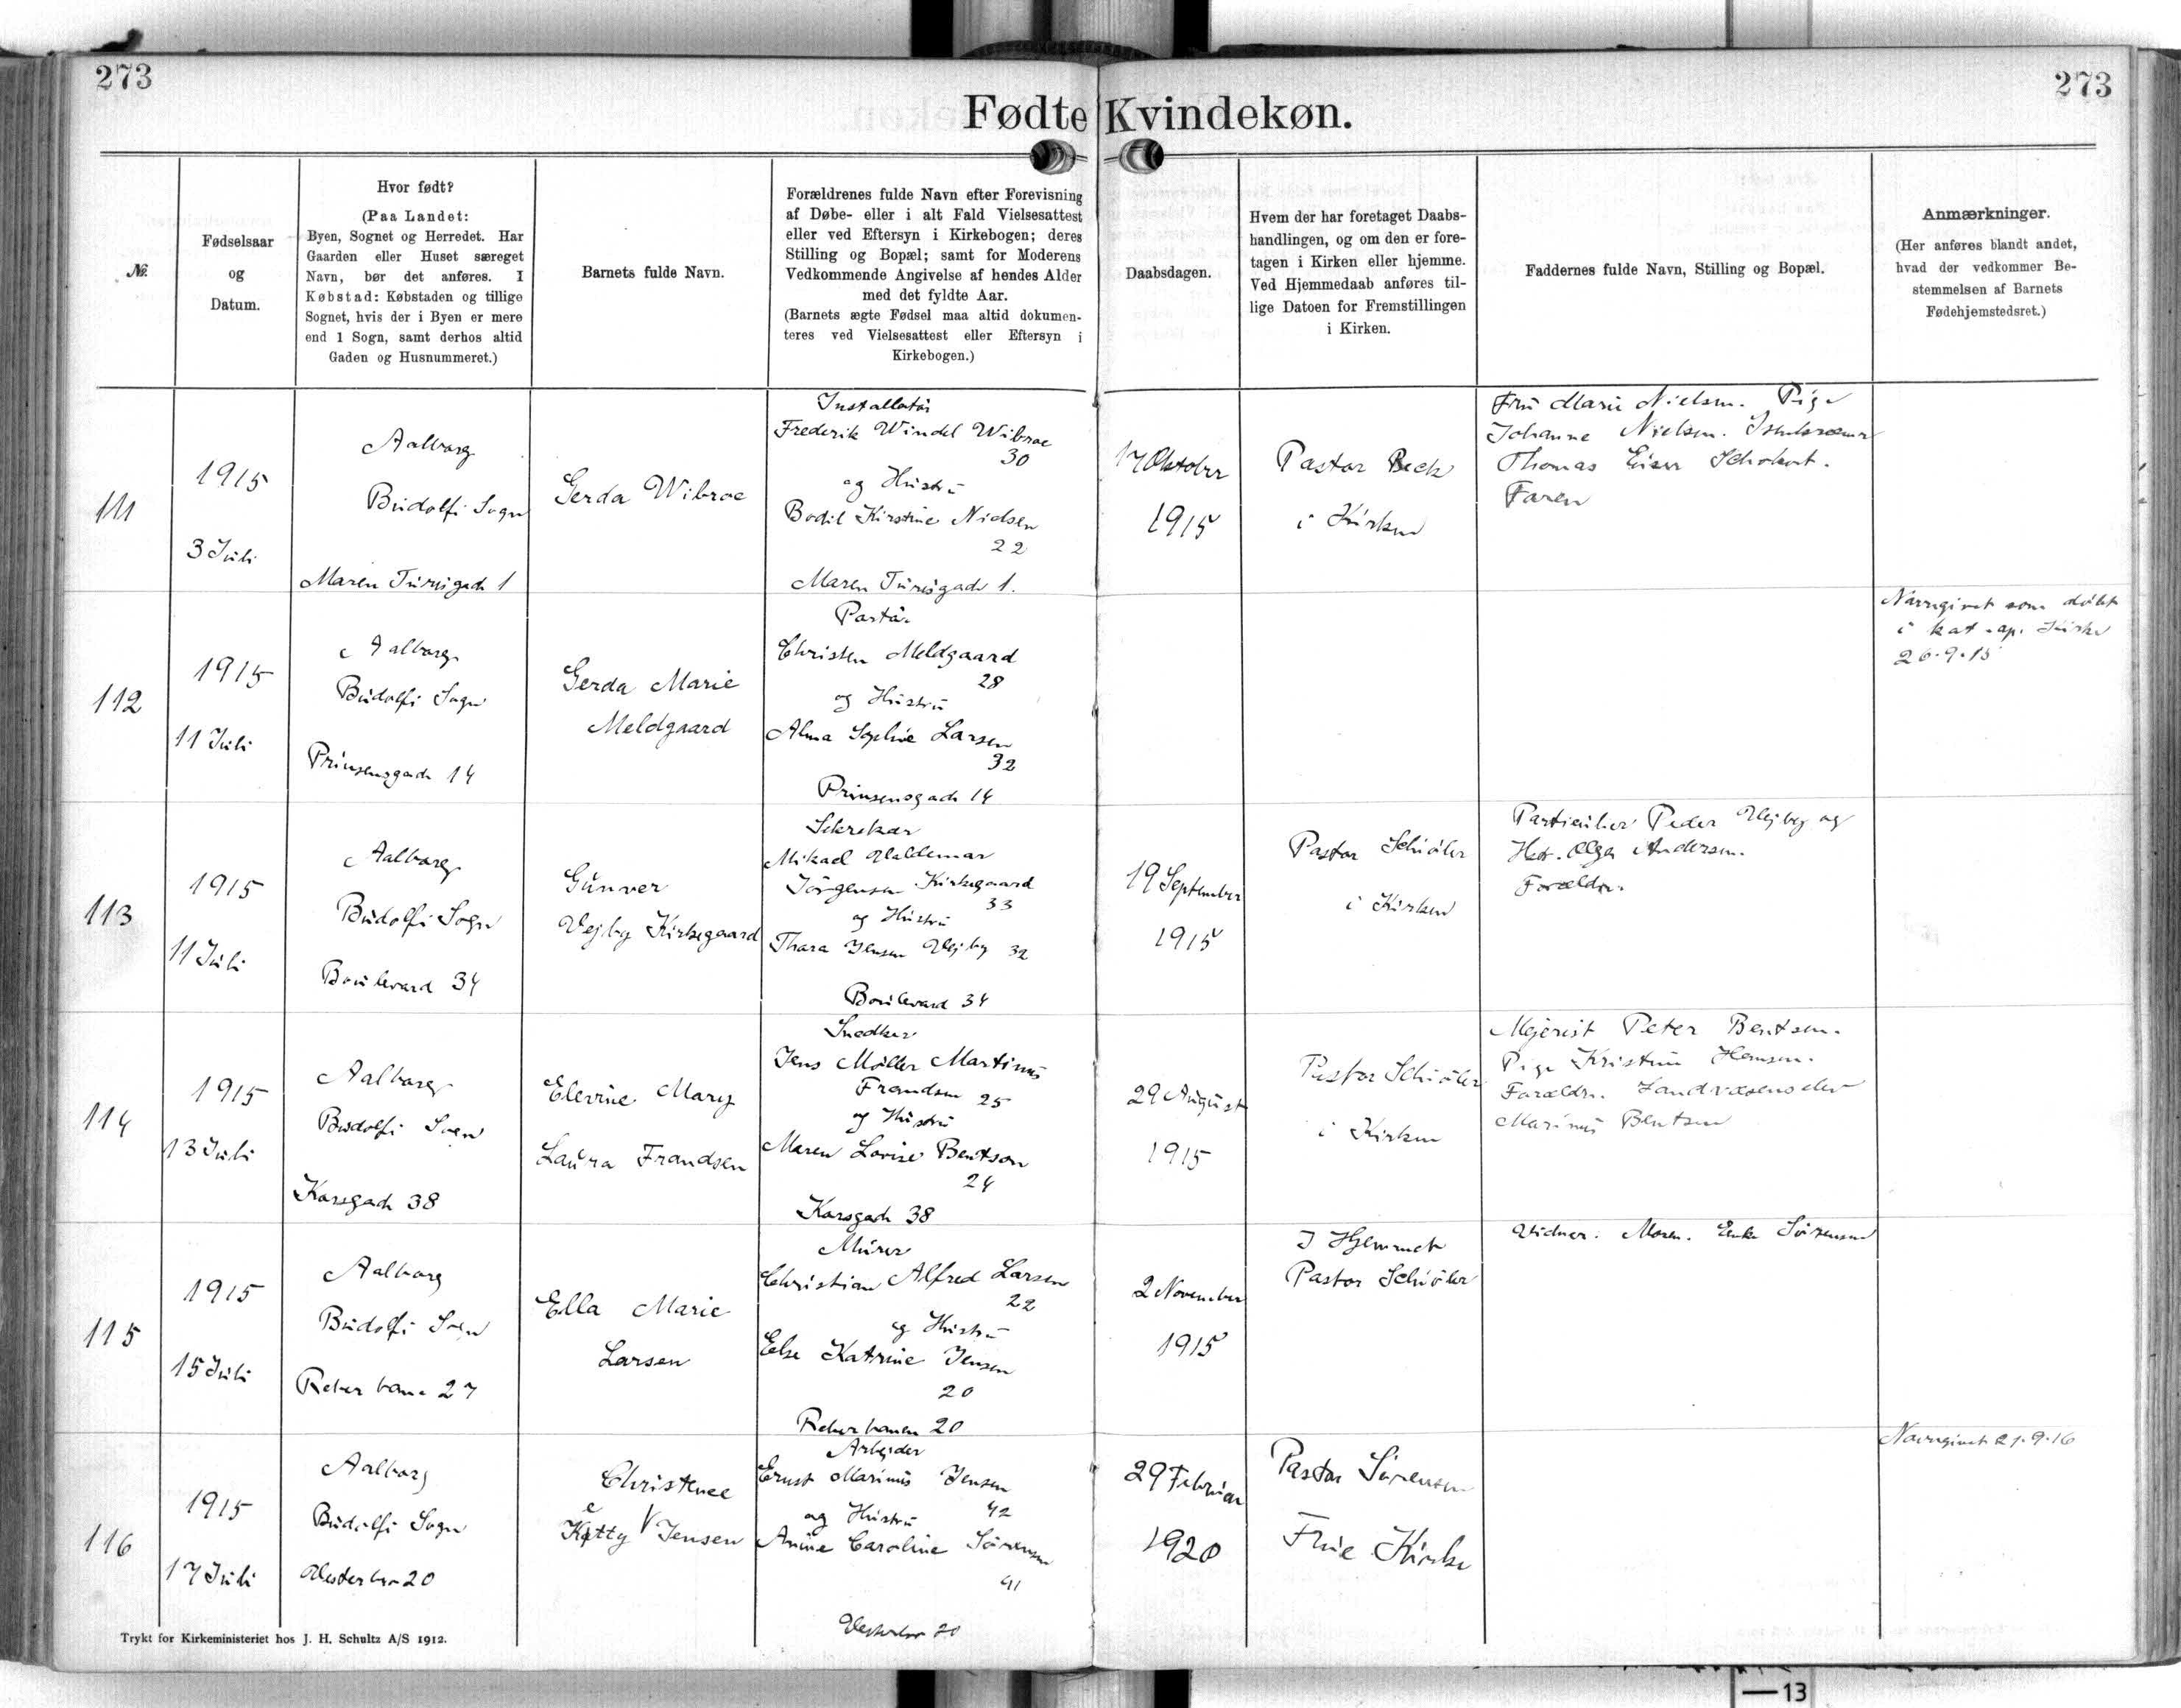 273
273
Fødte Kvindekøn.
№.
Fødselsaar
og
Datum.
Hvor født?
(Paa Landet:
Byen, Sognet og Herredet. Har
Gaarden eller Huset særeget
Navn, bør det anføres. I
Købstad: Købstaden og tillige
Sognet, hvis der i Byen er mere
end 1 Sogn, samt derhos altid
Gaden og Husnummeret.)
Barnets fulde Navn.
Forældrenes fulde Navn efter Forevisning
af Døbe- eller i alt Fald Vielsesattest
eller ved Eftersyn i Kirkebogen; deres
Stilling og Bopæl; samt for Moderens
Vedkommende Angivelse af hendes Alder
med det fyldte Aar.
(Barnets ægte Fødsel maa altid dokumen-
teres ved Vielsesattest eller Eftersyn i
Kirkebogen.)
Daabsdagen.
Hvem der har foretaget Daabs-
handlingen, og om den er fore-
tagen i Kirken eller hjemme.
Ved Hjemmedaab anføres til-
lige Datoen for Fremstillingen
i Kirken.
Faddernes fulde Navn, Stilling og Bopæl.
Anmærkninger.
(Her anføres blandt andet,
hvad der vedkommer Be-
stemmelsen af Barnets
Fødehjemstedsret.)
111
1915
3 Juli
Aalborg
Budolfi Sogn
Maren Turisgade 1
Gerda Wibroe
Installatør
Frederik Windel Wibroe
30
og Hustru
Bodil Kirstine Nielsen
22
Maren Turisgade 1.
17 Oktober
1915
Pastor Beck
i Kirken
Fru Marie Nielsen. Pige
Johanne Nielsen. Isenkræmmer
Thomas Schokert.
Faren
112
1915
11 Juli
Aalborg
Budolfi Sogn
Prinsensgade 14
Gerda Marie
Meldgaard
Pastor
Christen Meldgaard
28
og Hustru
Alma Sophie Larsen
32
Prinsensgade 14
Navngivet som døbt
i kat. ap. Kirke
26.9.15
113
1915
11 Juli
Aalborg
Budolfi Sogn
Boulevard 34
Gunver
Vejby Kirkegaard
Sekretær
Mikael Valdemar
Jørgensen Kirkegaard
33
og Hustru
Thara Jensen Vejby 32
Boulevard 34
19 September
1915
Pastor Schiøler
i Kirken
Partikulier Peder Vejby og
Hstr. Olga Andersen.
Forældre.
114
1915
13 Juli
Aalborg
Budolfi Sogn
Korsgade 38
Elevine Mary
Laura Frandsen
Snedker
Jens Møller Martinus
Frandsen 25
og Hustru
Maren Lovise Bentsen
24
Korsgade 38
29 August
1915
Pastor Schiøler
i Kirken
Mejerist Peter Bentsen.
Pige Kristine Hansen.
Forældre. Landvæsenselev
Marinus Bentsen
115
1915
15 Juli
Aalborg
Budolfi Sogn
Reberbane 27
Ella Marie
Larsen
Murer
Christian Alfred Larsen
22
og Hustru
Else Katrine Jensen
20
Reberbanen 20
2 November
1915
I Hjemmet
Pastor Schiøler
Vidner. Moren. Enke Sørensen
116
1915
17 Juli
Aalborg
Budolfi Sogn
Vesterbro 20
Christence
Ketty Jensen
Arbejder
Ernst Marinus Jensen
42
og Hustru
Anine Caroline Sørensen
41
Vesterbro 20
29 Februar
1920
Pastor Sørensen
Frie Kirke
Navngivet 21.9.16
Trykt for Kirkeministeriet hos J. H. Schultz A/S 1912.
13